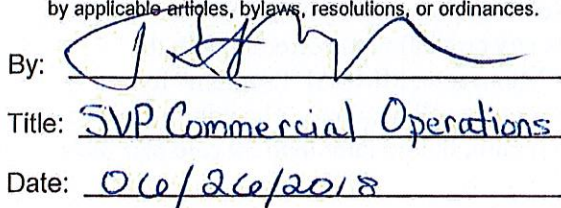 by applicable articles, bylaws, resolutions, or ordinances.
By:
Title: SVP Commercial Operations
Date: 06/26/2018